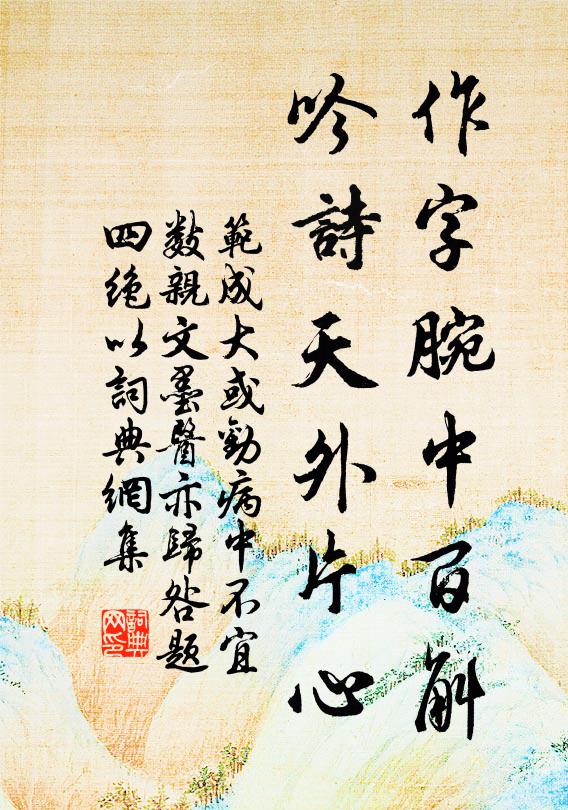 作字腕中百斛
吟詩天外片心
範成大或勸病中不宜
數親文墨醫亦歸咎題
四絶以詞典網集
詞典
网印